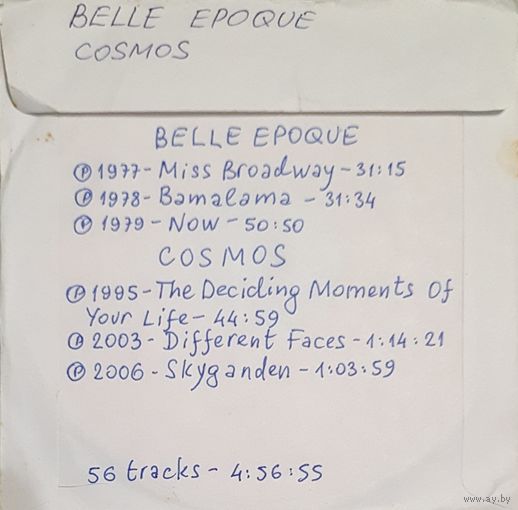 BELLE EPOQUE
COSMOS
BELLE EPOQUE
℗ 1977 - Miss Broadway - 31:15
℗ 1978 - Bamalama - 31:34
℗ 1979 - Now - 50:50
COSMOS
℗ 1995 - The Deciding Moments Of
Your Life - 44:59
℗ 2003 - Different Faces - 1:14:21
℗ 2006 - Skyganden - 1:03:59
56 tracks - 4:56:55
www.ay.by